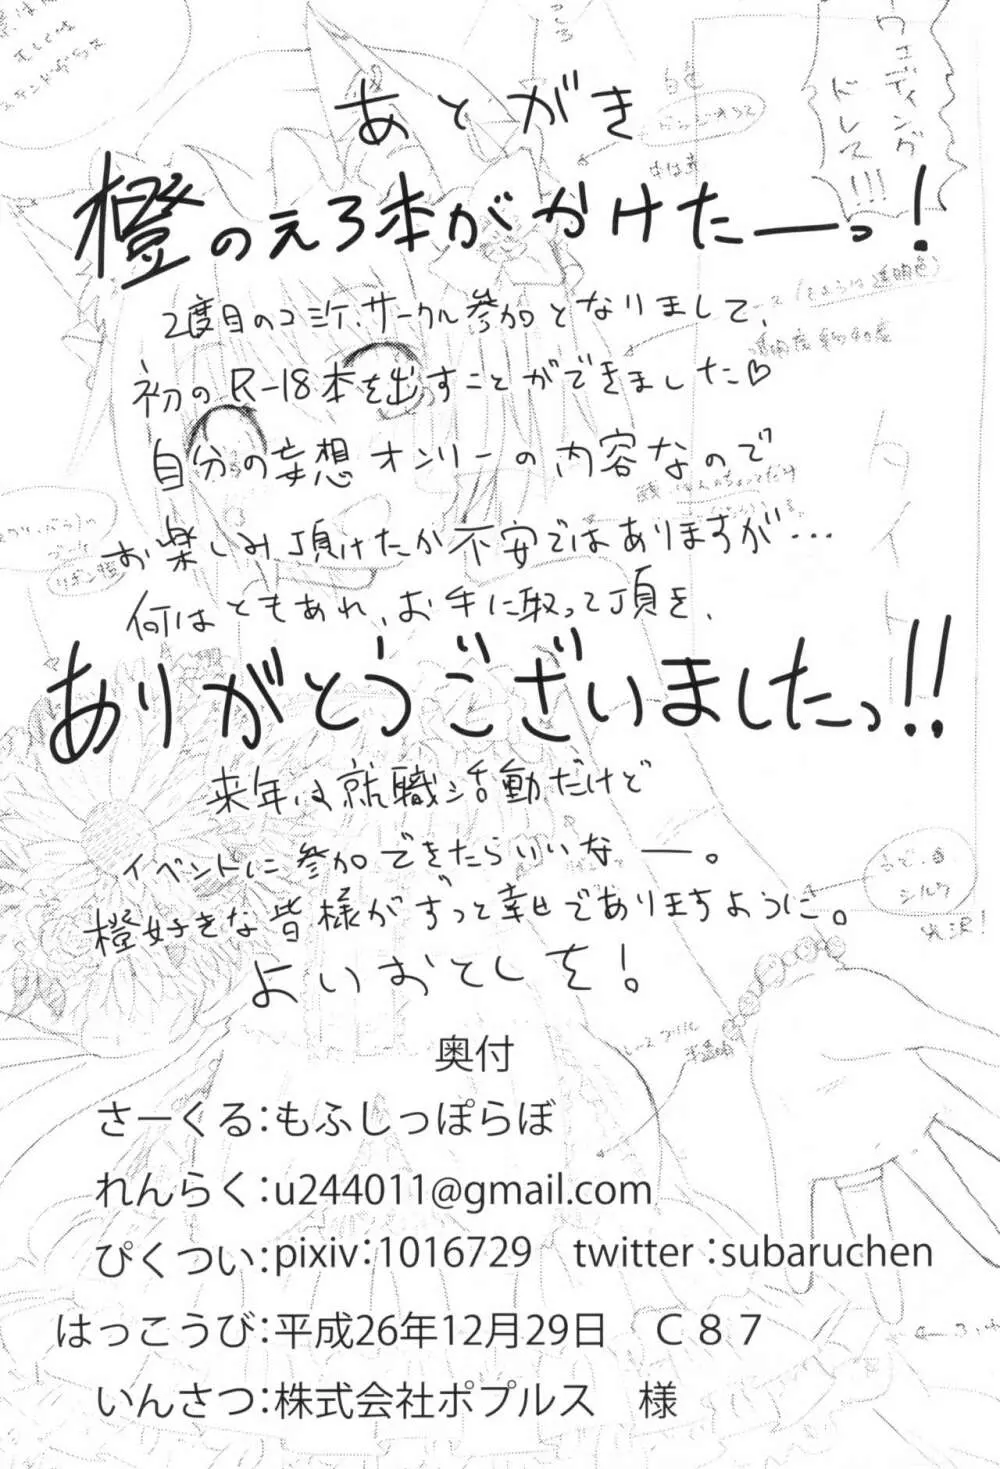 ウェディング
ドレス!!!
あとがき
橙のえろ本がかけたーっ!
2度目のコミケ、サークル参加となりまして、
初のR-18本を出すことができました♡
自分の妄想オンリーの内容なので
お楽しみ頂けたか不安ではありますが…
何はともあれ、お手に取って頂き、
ありがとうございましたっ!!
来年は就職活動だけど
イベントに参加できたらいいなー。
橙好きな皆様がずっと幸せでありますように。
よいおとしを!
シルク
光沢!
奥付
さーくる：もふしっぽらぼ
れんらく：u244011@gmail.com
ぴくつい：pixiv：1016729　twitter：subaruchen
はっこうび：平成26年12月29日　C87
いんさつ：株式会社ポプルス　様